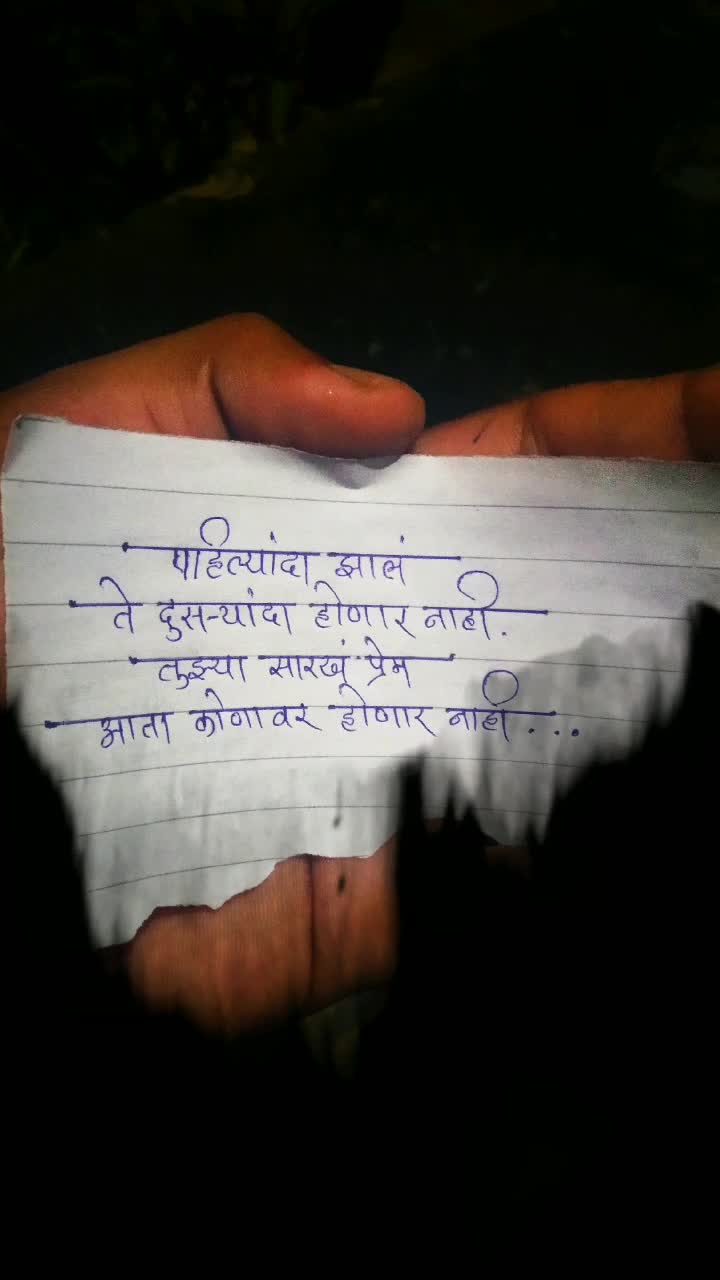 पहिल्यांदा झालं
ते दुसऱ्यांदा होणार नाही.
तुझ्या सारखं प्रेम
आता कोणावर होणार नाही...